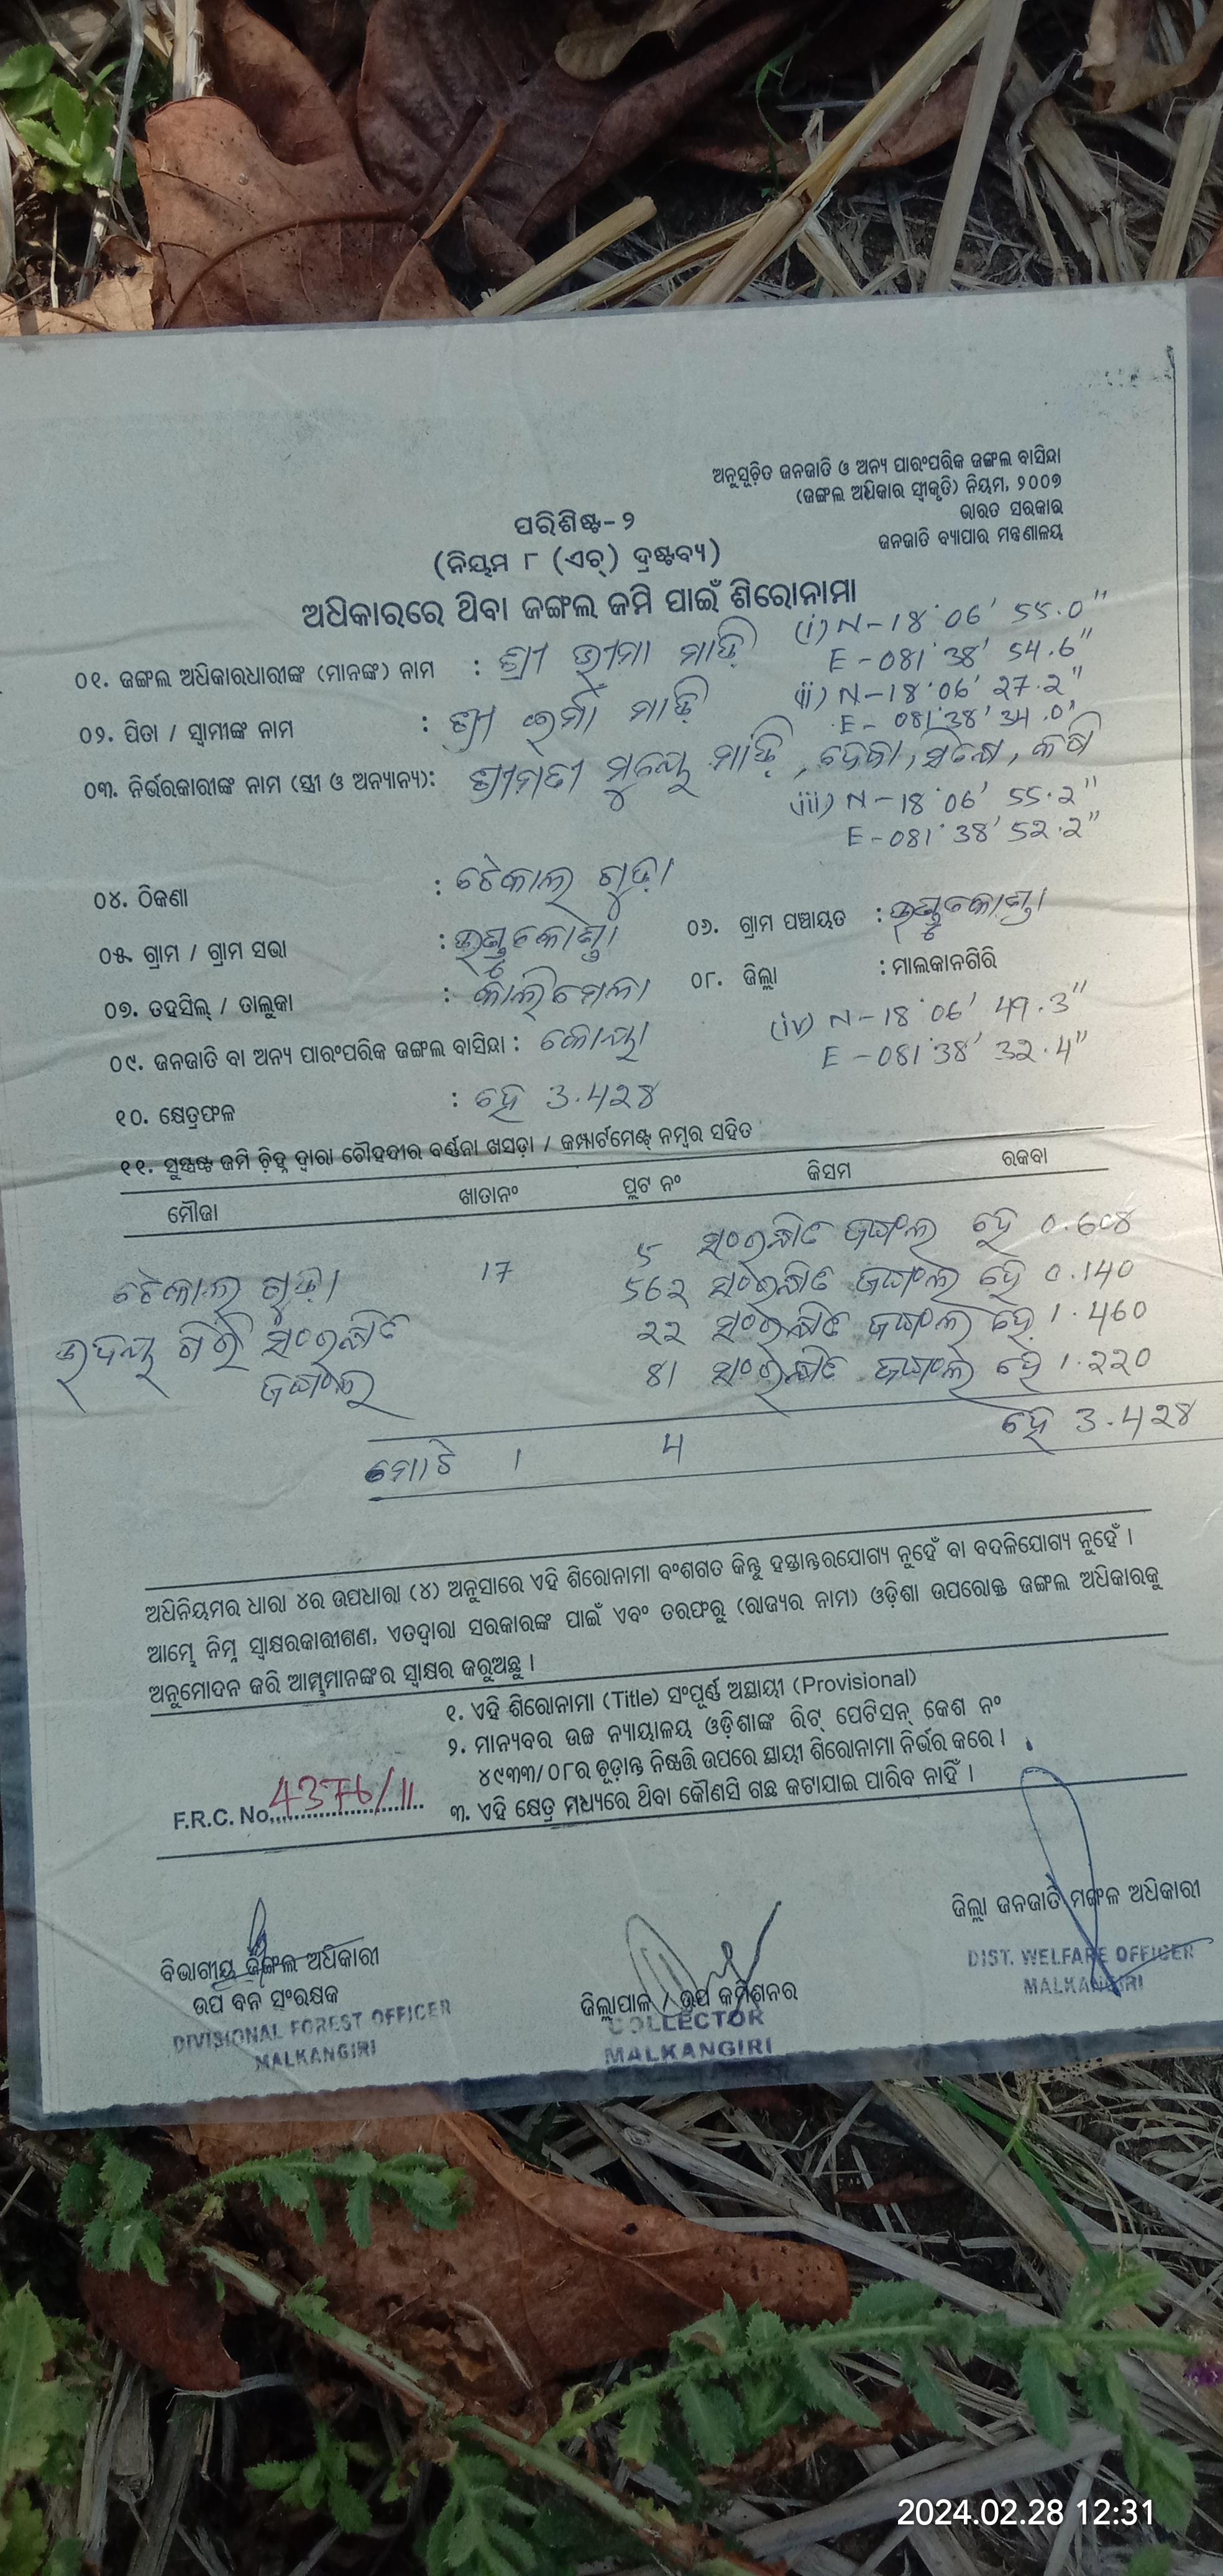 ଅନୁସୂଚିତ ଜନଜାତି ଓ ଅନ୍ୟ ପାରଂପରିକ ଜଙ୍ଗଲ ବାସିନ୍ଦା
(ଜଙ୍ଗଲ ଅଧିକାର ସ୍ୱୀକୃତି) ନିୟମ, ୨୦୦୭
ଭାରତ ସରକାର
ଜନଜାତି ବ୍ୟାପାର ମନ୍ତ୍ରଣାଳୟ
ପରିଶିଷ୍ଟ-୨
(ନିୟମ ୮ (ଏଚ୍) ଦ୍ରଷ୍ଟବ୍ୟ)
ଅଧିକାରରେ ଥିବା ଜଙ୍ଗଲ ଜମି ପାଇଁ ଶିରୋନାମା
(i) N-18°06' 55.0"
E-081°38' 54.6"
୦୧. ଜଙ୍ଗଲ ଅଧିକାରଧାରୀଙ୍କ (ମାନଙ୍କ) ନାମ : ଶ୍ରୀ ଭୀମା ମାଡ଼ି
(ii) N-18°06' 27.2"
E-081°38' 34.0"
୦୨. ପିତା / ସ୍ୱାମୀଙ୍କ ନାମ : ଶ୍ରୀ ମାଡ଼ି
୦୩. ନିର୍ଭରକାରୀଙ୍କ ନାମ (ସ୍ତ୍ରୀ ଓ ଅନ୍ୟାନ୍ୟ): ଶ୍ରୀମତୀ ମାଡ଼ି
(iii) N-18°06' 55.2"
E-081°38' 52.2"
୦୪. ଠିକଣା : ଟେକାଲ ଗୁଡ଼ା
୦୫. ଗ୍ରାମ / ଗ୍ରାମ ସଭା : ୦୬. ଗ୍ରାମ ପଞ୍ଚାୟତ :
୦୭. ତହସିଲ୍ / ତାଲୁକା : କାଲିମେଳା ୦୮. ଜିଲ୍ଲା : ମାଲକାନଗିରି
୦୯. ଜନଜାତି ବା ଅନ୍ୟ ପାରଂପରିକ ଜଙ୍ଗଲ ବାସିନ୍ଦା : କୋୟା
(iv) N-18°06' 49.3"
E-081°38' 32.4"
୧୦. କ୍ଷେତ୍ରଫଳ : ହେ 3.428
୧୧. ସୁସ୍ପଷ୍ଟ ଜମି ଚିହ୍ନ ଦ୍ୱାରା ଚୌହଦୀର ବର୍ଣ୍ଣନା ଖସଡ଼ା / କମ୍ପାର୍ଟମେଣ୍ଟ୍ ନମ୍ବର ସହିତ
ମୌଜା ଖାତାନଂ ପ୍ଲଟ ନଂ କିସମ ରକବା
5 ସଂରକ୍ଷିତ ଜଙ୍ଗଲ ହେ 0.608
ଟେକାଲ ଗୁଡ଼ା 17 562 ସଂରକ୍ଷିତ ଜଙ୍ଗଲ ହେ 0.140
ଉଦୟ ଗିରି ସଂରକ୍ଷିତ 22 ସଂରକ୍ଷିତ ଜଙ୍ଗଲ ହେ 1.460
ଜଙ୍ଗଲ 81 ସଂରକ୍ଷିତ ଜଙ୍ଗଲ ହେ 1.220
ମୋଟ 1 4 ହେ 3.428
ଅଧିନିୟମର ଧାରା ୪ର ଉପଧାରା (୪) ଅନୁସାରେ ଏହି ଶିରୋନାମା ବଂଶଗତ କିନ୍ତୁ ହସ୍ତାନ୍ତରଯୋଗ୍ୟ ନୁହେଁ ବା ବଦଳିଯୋଗ୍ୟ ନୁହେଁ ।
ଆମ୍ଭେ ନିମ୍ନ ସ୍ୱାକ୍ଷରକାରୀଗଣ, ଏତଦ୍ୱାରା ସରକାରଙ୍କ ପାଇଁ ଏବଂ ତରଫରୁ (ରାଜ୍ୟର ନାମ) ଓଡ଼ିଶା ଉପରୋକ୍ତ ଜଙ୍ଗଲ ଅଧିକାରକୁ
ଅନୁମୋଦନ କରି ଆମ୍ଭମାନଙ୍କର ସ୍ୱାକ୍ଷର କରୁଅଛୁ ।
୧. ଏହି ଶିରୋନାମା (Title) ସଂପୂର୍ଣ୍ଣ ଅସ୍ଥାୟୀ (Provisional)
୨. ମାନ୍ୟବର ଉଚ୍ଚ ନ୍ୟାୟାଳୟ ଓଡ଼ିଶାଙ୍କ ରିଟ୍ ପେଟିସନ୍ କେଶ ନଂ
୪୯୩୩/୦୮ର ଚୂଡ଼ାନ୍ତ ନିଷ୍ପତ୍ତି ଉପରେ ସ୍ଥାୟୀ ଶିରୋନାମା ନିର୍ଭର କରେ ।
୩. ଏହି କ୍ଷେତ୍ର ମଧ୍ୟରେ ଥିବା କୌଣସି ଗଛ କଟାଯାଇ ପାରିବ ନାହିଁ ।
F.R.C. No. 4376/11
ବିଭାଗୀୟ ଜଙ୍ଗଲ ଅଧିକାରୀ
ଉପ ବନ ସଂରକ୍ଷକ
DIVISIONAL FOREST OFFICER
MALKANGIRI
ଜିଲ୍ଲାପାଳ / ଉପ କମିଶନର
COLLECTOR
MALKANGIRI
ଜିଲ୍ଲା ଜନଜାତି ମଙ୍ଗଳ ଅଧିକାରୀ
DIST. WELFARE OFFICER
MALKANGIRI
2024.02.28 12:31